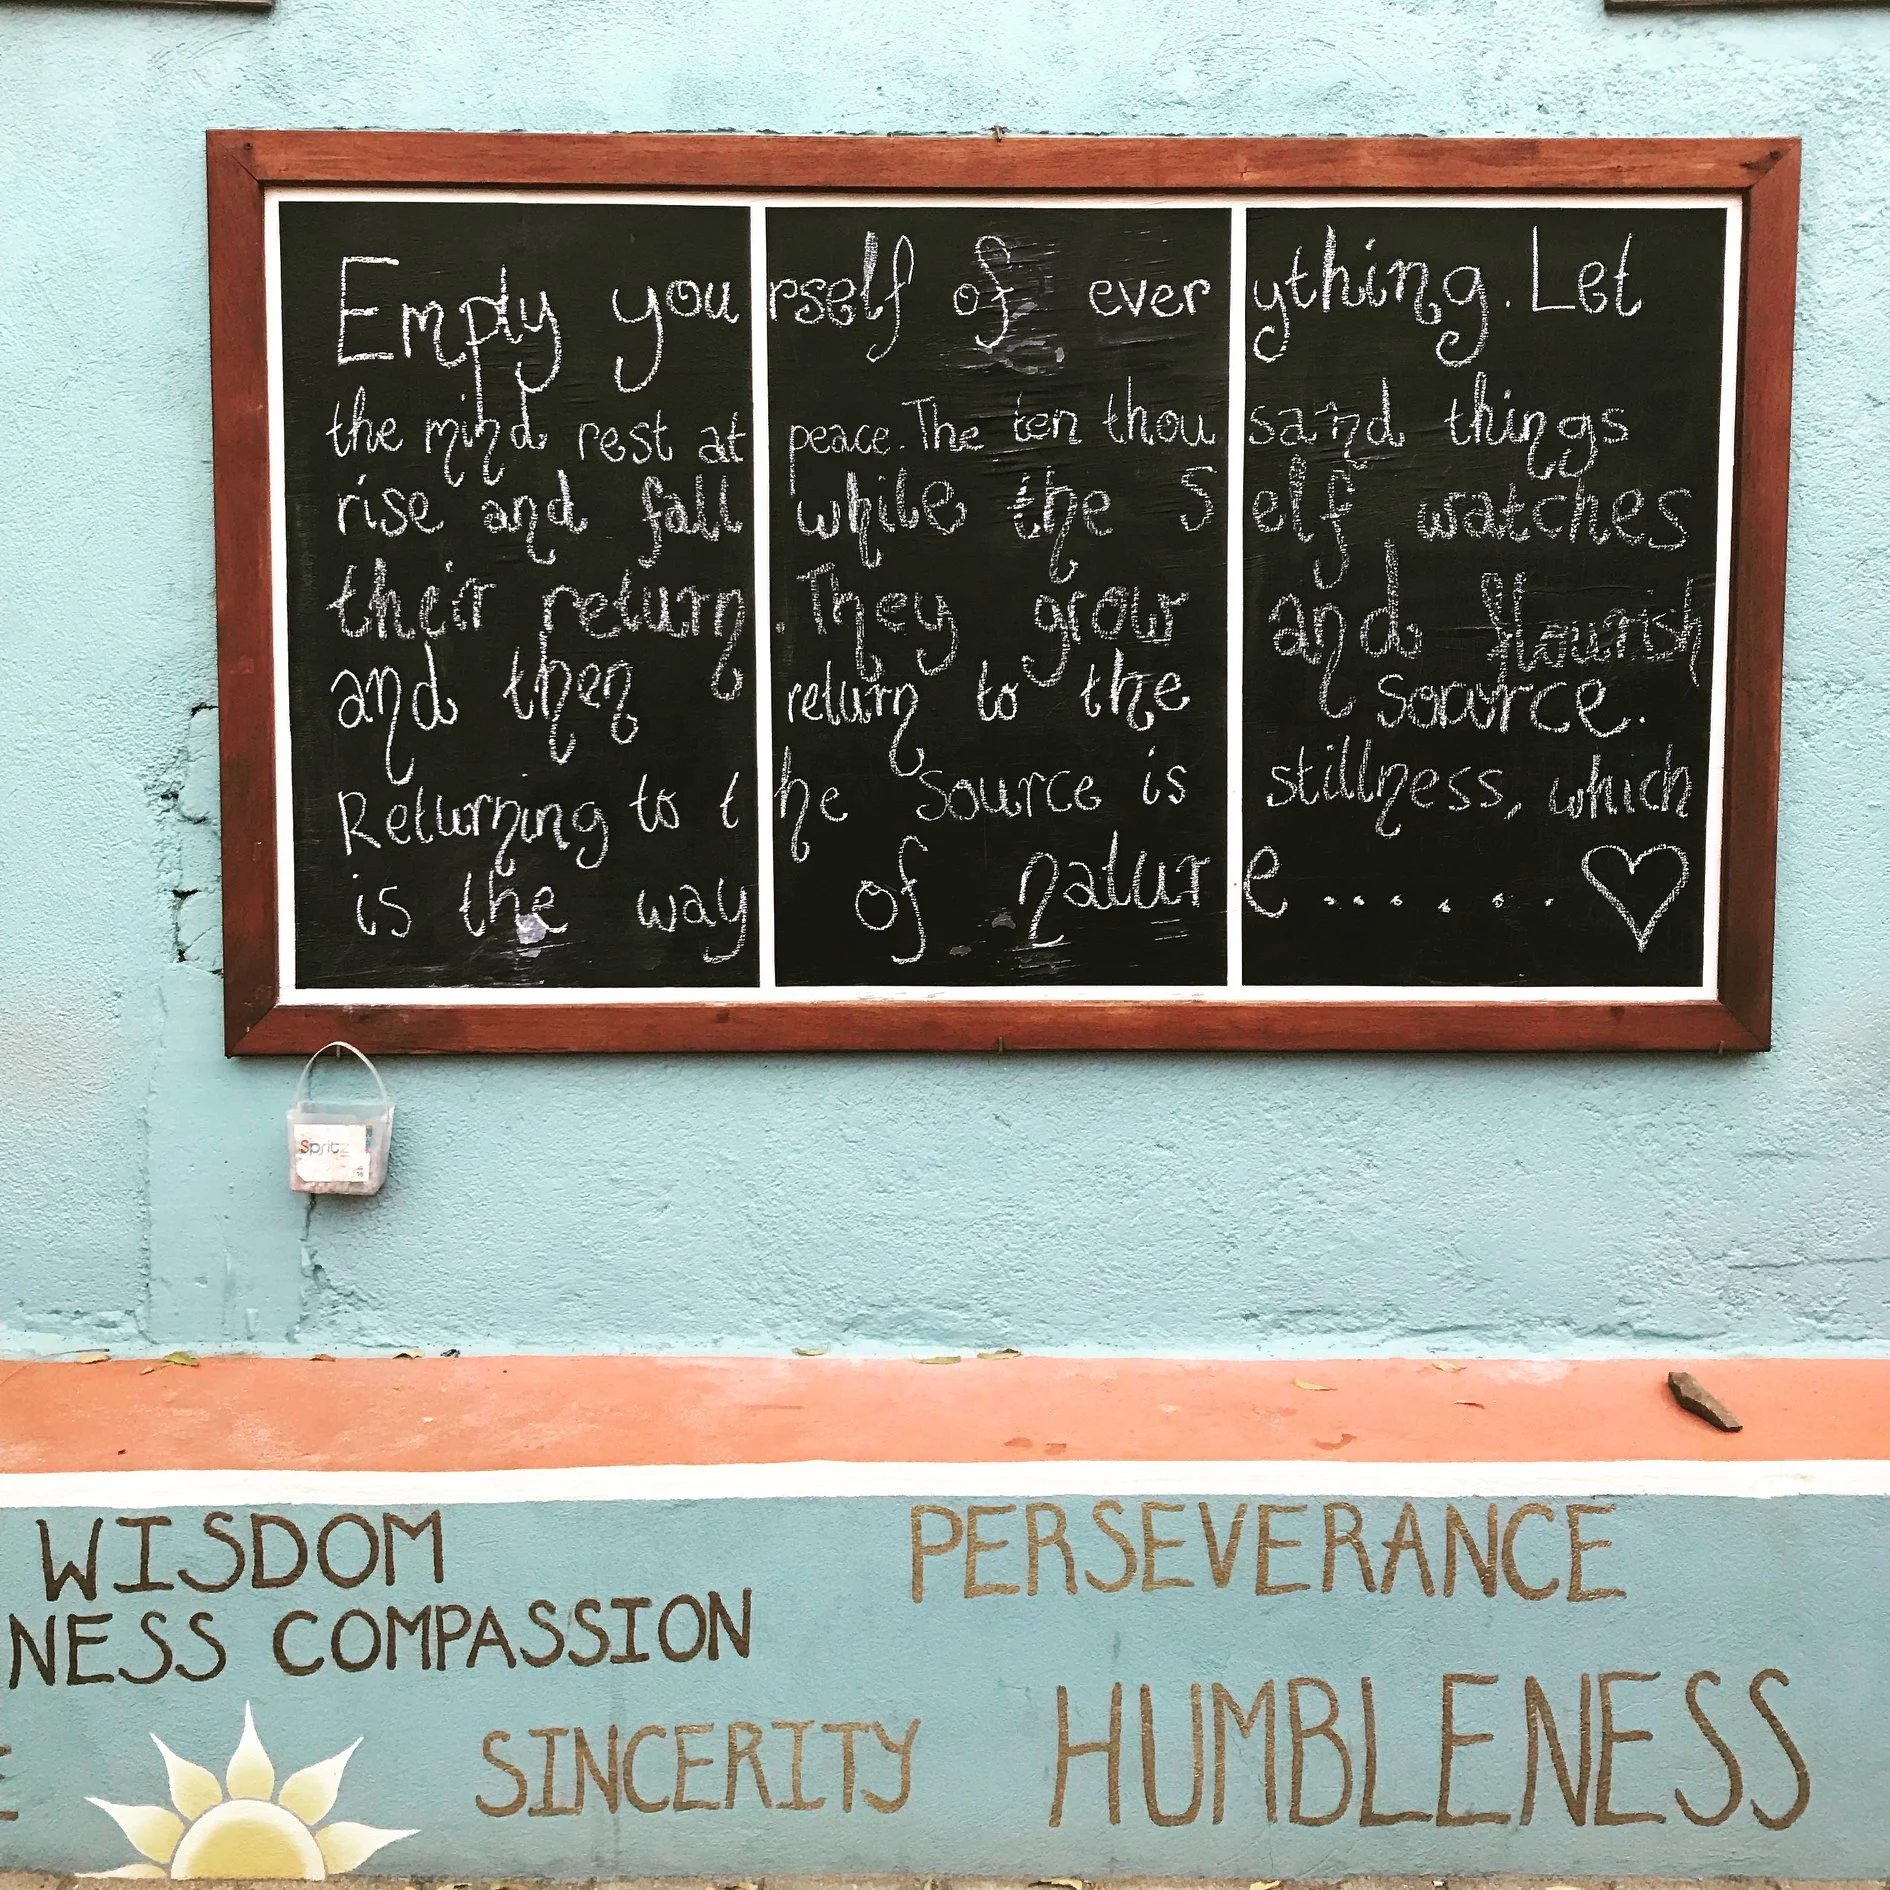 Empty yourself of everything. Let
the mind rest at peace. The ten thousand things
rise and fall while the Self watches
their return. They grow and flourish
and then return to the source.
Returning to the Source is stillness, which
is the way of nature....... ♡
Spritz
WISDOM
PERSEVERANCE
NESS COMPASSION
SINCERITY
HUMBLENESS